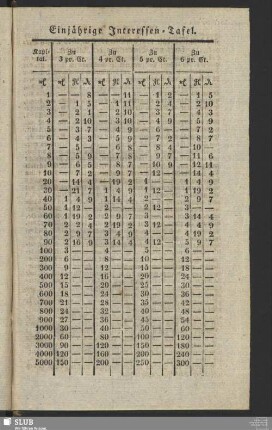 Einjährige Interessen-Tafel.
Kapi- Zu Zu Zu Zu
tal. 3 pr. Ct. 4 pr. Ct. 5 pr. Ct. 6 pr. Ct.
1 — — 8 — — 11 — 1 2 — 1 5
2 — 1 5 — 1 11 — 2 4 — 2 10
3 — 2 1 — 2 10 — 3 7 — 4 3
4 — 2 10 — 3 10 — 4 9 — 5 9
5 — 3 7 — 4 9 — 6 — — 7 2
6 — 4 3 — 5 9 — 7 2 — 8 7
7 — 5 — — 6 8 — 8 4 — 10 —
8 — 5 9 — 7 8 — 9 7 — 11 6
9 — 6 5 — 8 7 — 10 9 — 12 11
10 — 7 2 — 9 7 — 12 — — 14 4
20 — 14 4 — 19 2 1 — — 1 4 9
30 — 21 7 1 4 9 1 12 — 1 19 2
40 1 4 9 1 14 4 2 — — 2 9 7
50 1 12 — 2 — — 2 12 — 3 — —
60 1 19 2 2 9 7 3 — — 3 14 4
70 2 2 4 2 19 2 3 12 — 4 4 9
80 2 9 7 3 4 9 4 — — 4 19 2
90 2 16 9 3 14 4 4 12 — 5 9 7
100 3 — — 4 — — 5 — — 6 — —
200 6 — — 8 — — 10 — — 12 — —
300 9 — — 12 — — 15 — — 18 — —
400 12 — — 16 — — 20 — — 24 — —
500 15 — — 20 — — 25 — — 30 — —
600 18 — — 24 — — 30 — — 36 — —
700 21 — — 28 — — 35 — — 42 — —
800 24 — — 32 — — 40 — — 48 — —
900 27 — — 36 — — 45 — — 54 — —
1000 30 — — 40 — — 50 — — 60 — —
2000 60 — — 80 — — 100 — — 120 — —
3000 90 — — 120 — — 150 — — 180 — —
4000 120 — — 160 — — 200 — — 240 — —
5000 150 — — 200 — — 250 — — 300 — —
SLUB